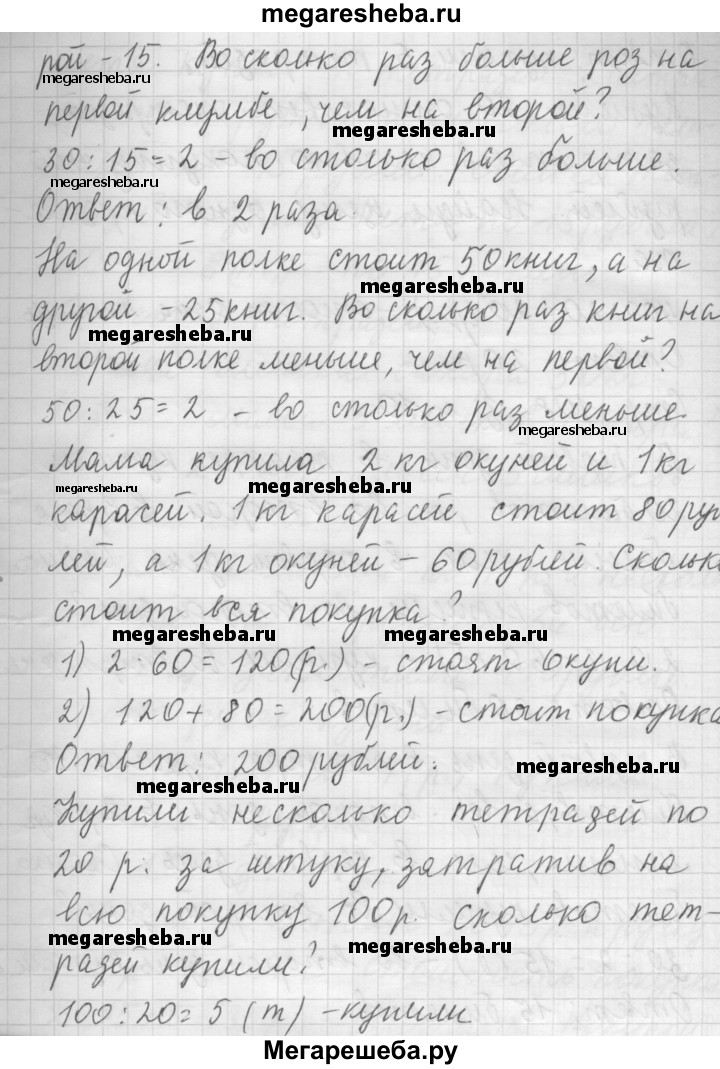 megaresheba.ru
рой - 15. Во сколько раз больше роз на
megaresheba.ru
первой клумбе, чем на второй?
megaresheba.ru
30 : 15 = 2 - во столько раз больше.
megaresheba.ru
Ответ: в 2 раза.
На одной полке стоит 50 книг, а на
megaresheba.ru
другой - 25 книг. Во сколько раз книг на
megaresheba.ru
второй полке меньше, чем на первой?
50 : 25 = 2 - во столько раз меньше.
megaresheba.ru
Мама купила 2 кг окуней и 1 кг
megaresheba.ru megaresheba.ru
карасей. 1 кг карасей стоит 80 руб
лей, а 1 кг окуней - 60 рублей. Сколько
стоит вся покупка?
megaresheba.ru megaresheba.ru
1) 2 · 60 = 120 (р.) - стоят окуни.
2) 120 + 80 = 200 (р.) - стоит покупка
Ответ: 200 рублей.
megaresheba.ru megaresheba.ru
Купили несколько тетрадей по
20 р. за штуку, затратив на
всю покупку 100 р. Сколько тет-
megaresheba.ru megaresheba.ru
радей купили?
100 : 20 = 5 (т) - купили
Мегарешеба.ру